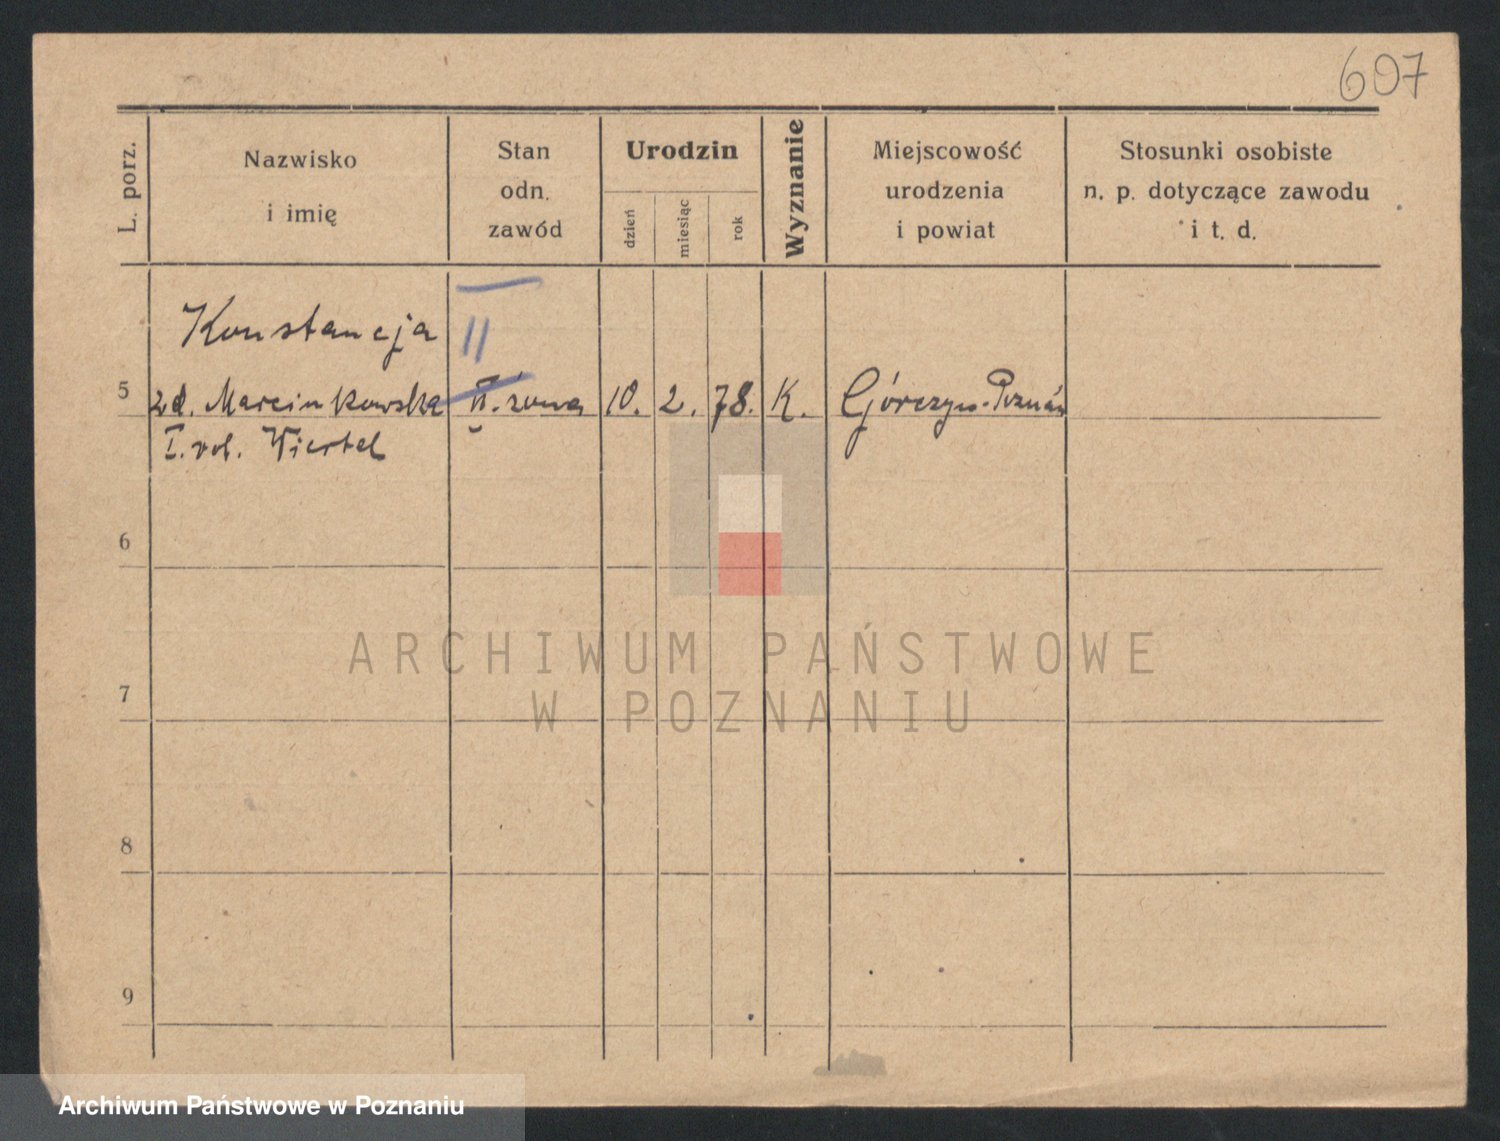 607
L. porz.
Nazwisko
i imię
Stan
odn.
zawód
Urodzin
dzień
miesiąc
rok
Wyznanie
Miejscowość
urodzenia
i powiat
Stosunki osobiste
n. p. dotyczące zawodu
i t. d.
Konstancja
II
5 zd. Marcinkowska II. żona 10. 2. 78. K. Górczyn-Poznań
I. vol. Wiertel
6
7
8
9
ARCHIWUM PAŃSTWOWE
W POZNANIU
Archiwum Państwowe w Poznaniu